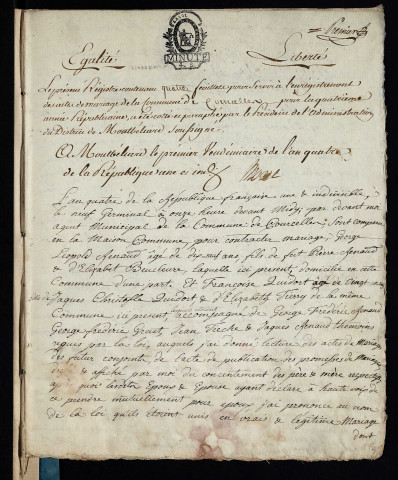 = Premier
Egalité Liberté
MINUTE
Le présent Régistre contenant quatre feuillets pour servir à l'enregistrement
des actes de mariage de la Commune de pour la quatrième
année Républicaine, a été cotté et paraphé par le Président de l'Administration
du District de Montbeliard Soussigné.
A Montbeliard le premier Vendémiaire de l'an quatre
de la République une et ind
L'an quatre de la République française une & indivisible,
le neuf Germinal à onze heure devant Midy, par devant moi
agent Municipal de la Commune de Courcelles, Sont comparu
en la Maison Commune, pour contracter mariage, George
Leopold âgé de dix ans fils de feit Pierre
& d'Elizabet laquelle ici présent, domicilié en cette
Commune d'une part. Et Françoise âgée de
Jaques Christophe & d'Elizabeth de la même
Commune ici présent, accompagné de George Frédéric
George frédéric Jean & Jaques Themoins
requis par la loi, auquels j'ai donné lecture des actes de
des futur conjonts, de l'acte de publication des promesses de Mariage
& afiché par moi du concentement des père & mère respectif
quoi lesdits Epoux & Epouse ayant déclaré à haute voix de
ce prendre mutuellement pour epoux j'ai prononcé au nom
de la loi qu'ils étoient unis en vrais & légitime Mariage
dont